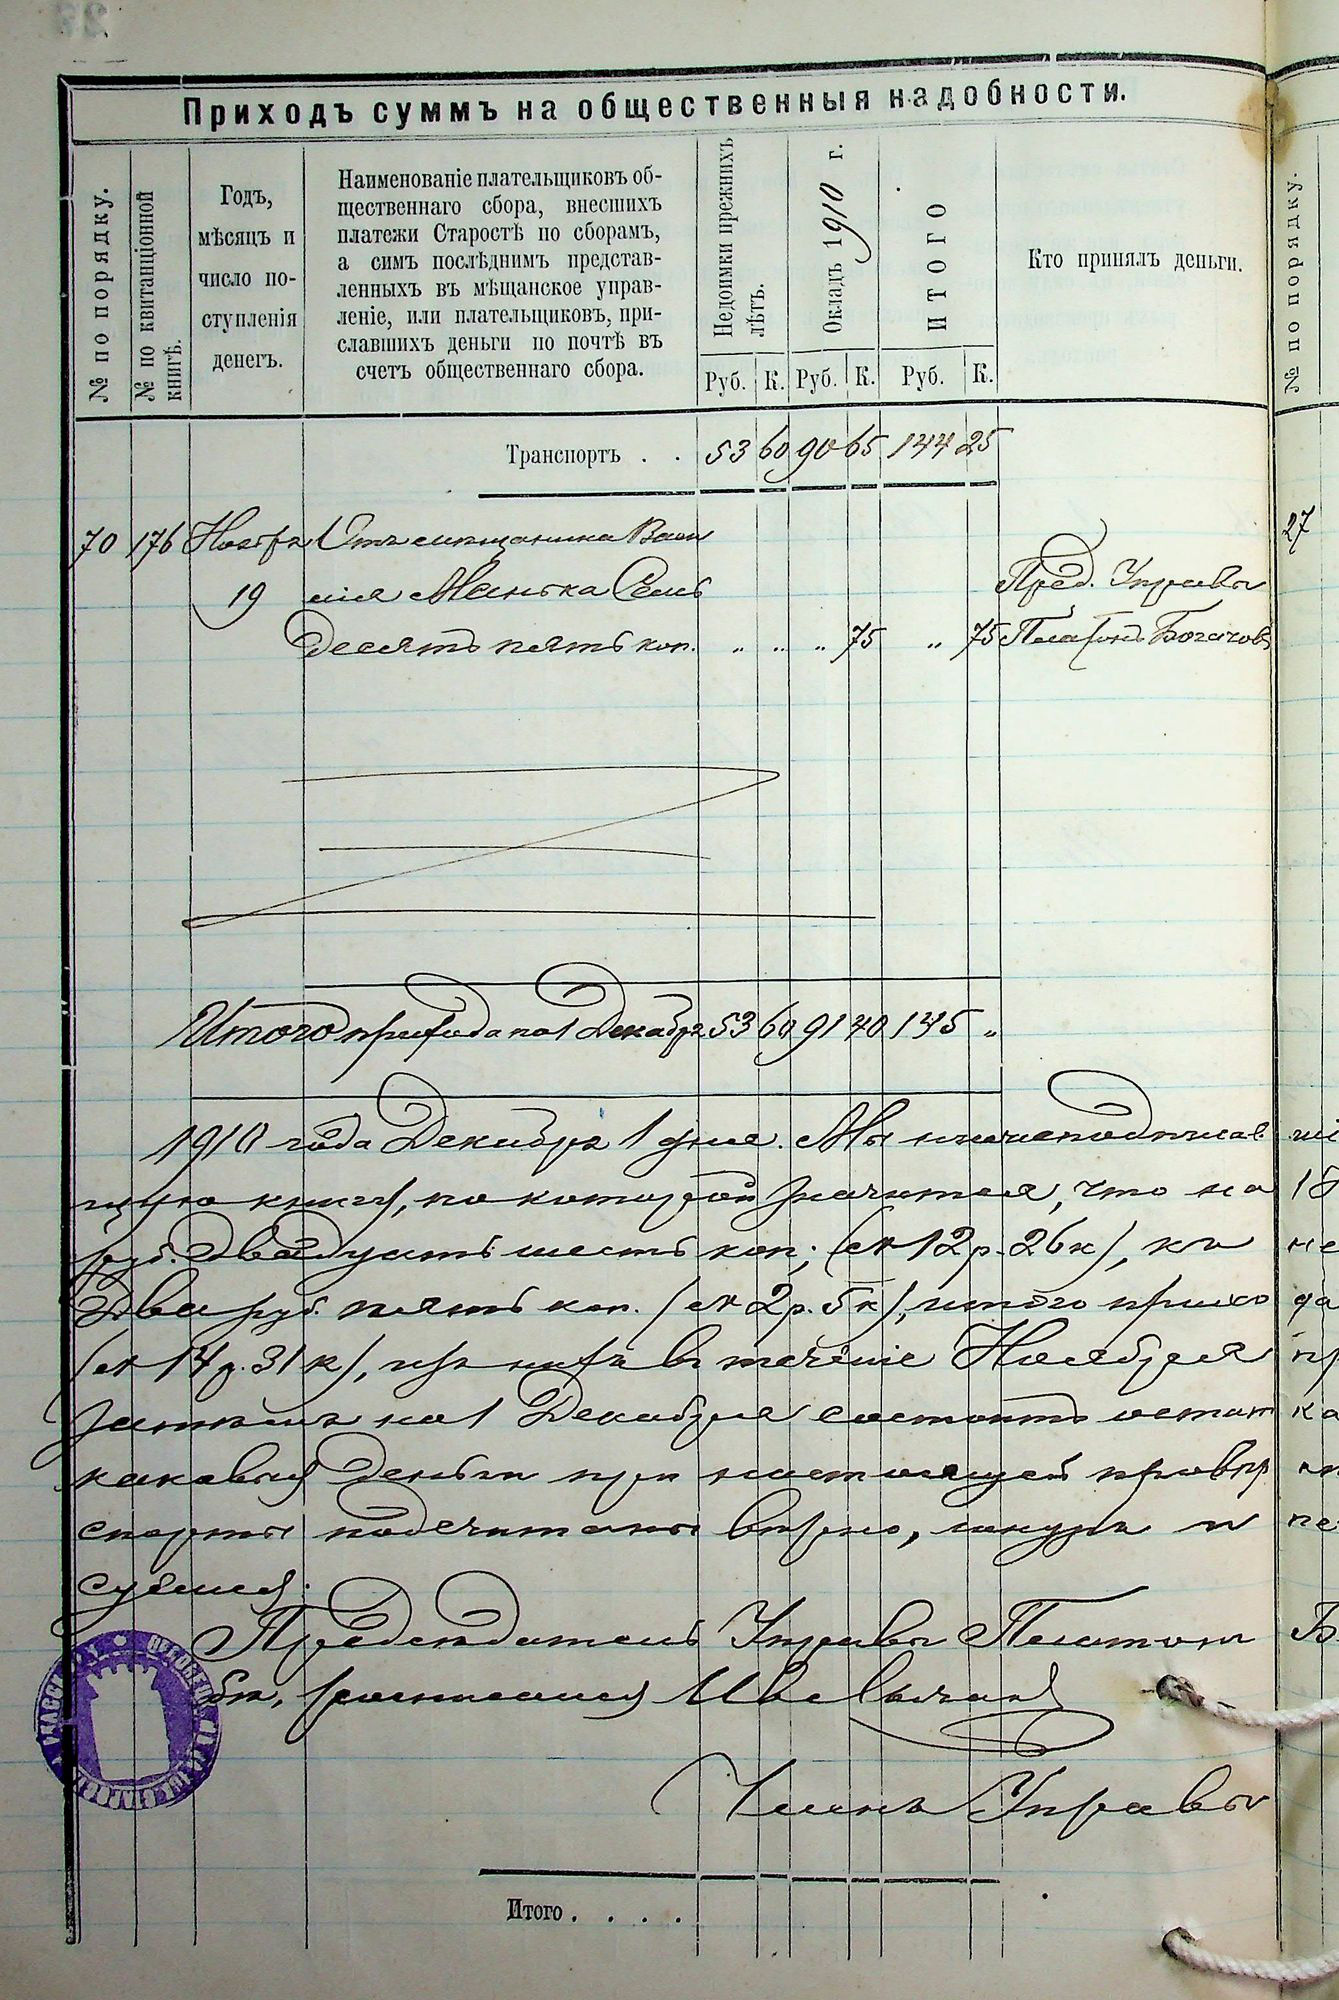 Приходъ суммъ на общественныя надобности.
№ по порядку.
№ по квитанціонной книгѣ.
Годъ, мѣсяцъ и число поступленія денегъ.
Наименованіе плательщиковъ об-
щественнаго сбора, внесшихъ
платежи Старостѣ по сборамъ,
а симъ послѣднимъ представ-
ленныхъ въ мѣщанское управ-
леніе, или плательщиковъ, при-
славшихъ деньги по почтѣ въ
счетъ общественнаго сбора.
Недоимки прежнихъ лѣтъ.
Окладъ 1910 г.
ИТОГО
Кто принялъ деньги.
№ по порядку.
Руб. К. Руб. К. Руб. К.
Транспортъ . . 53 60 90 65 144 25
70 176 Ноября Отъ мѣщанина Васи 27
19 лія Манька Семь Пред. Управы
десять пять коп. " " " 75 " 75 Платонъ Богачовъ
Итого прихода по 1 Декабря 53 60 91 40 145 "
1910 года Декабря 1 дня. Мы нижеподписав
щую книгу, по которой значится, что на
руб. двадцать шесть коп; (12 р. 26 к), къ
два руб. пять коп. (2 р. 5 к), итого прихо
(14 р. 31 к), изъ нихъ въ теченіе Ноября
затѣмъ на 1 Декабря состоитъ остат
каковыя деньги при настоящей провѣр
подсчитаны вѣрно, шнуръ и
Предсѣдатель Управы Платонъ
Членъ Управы
Итого . . . .